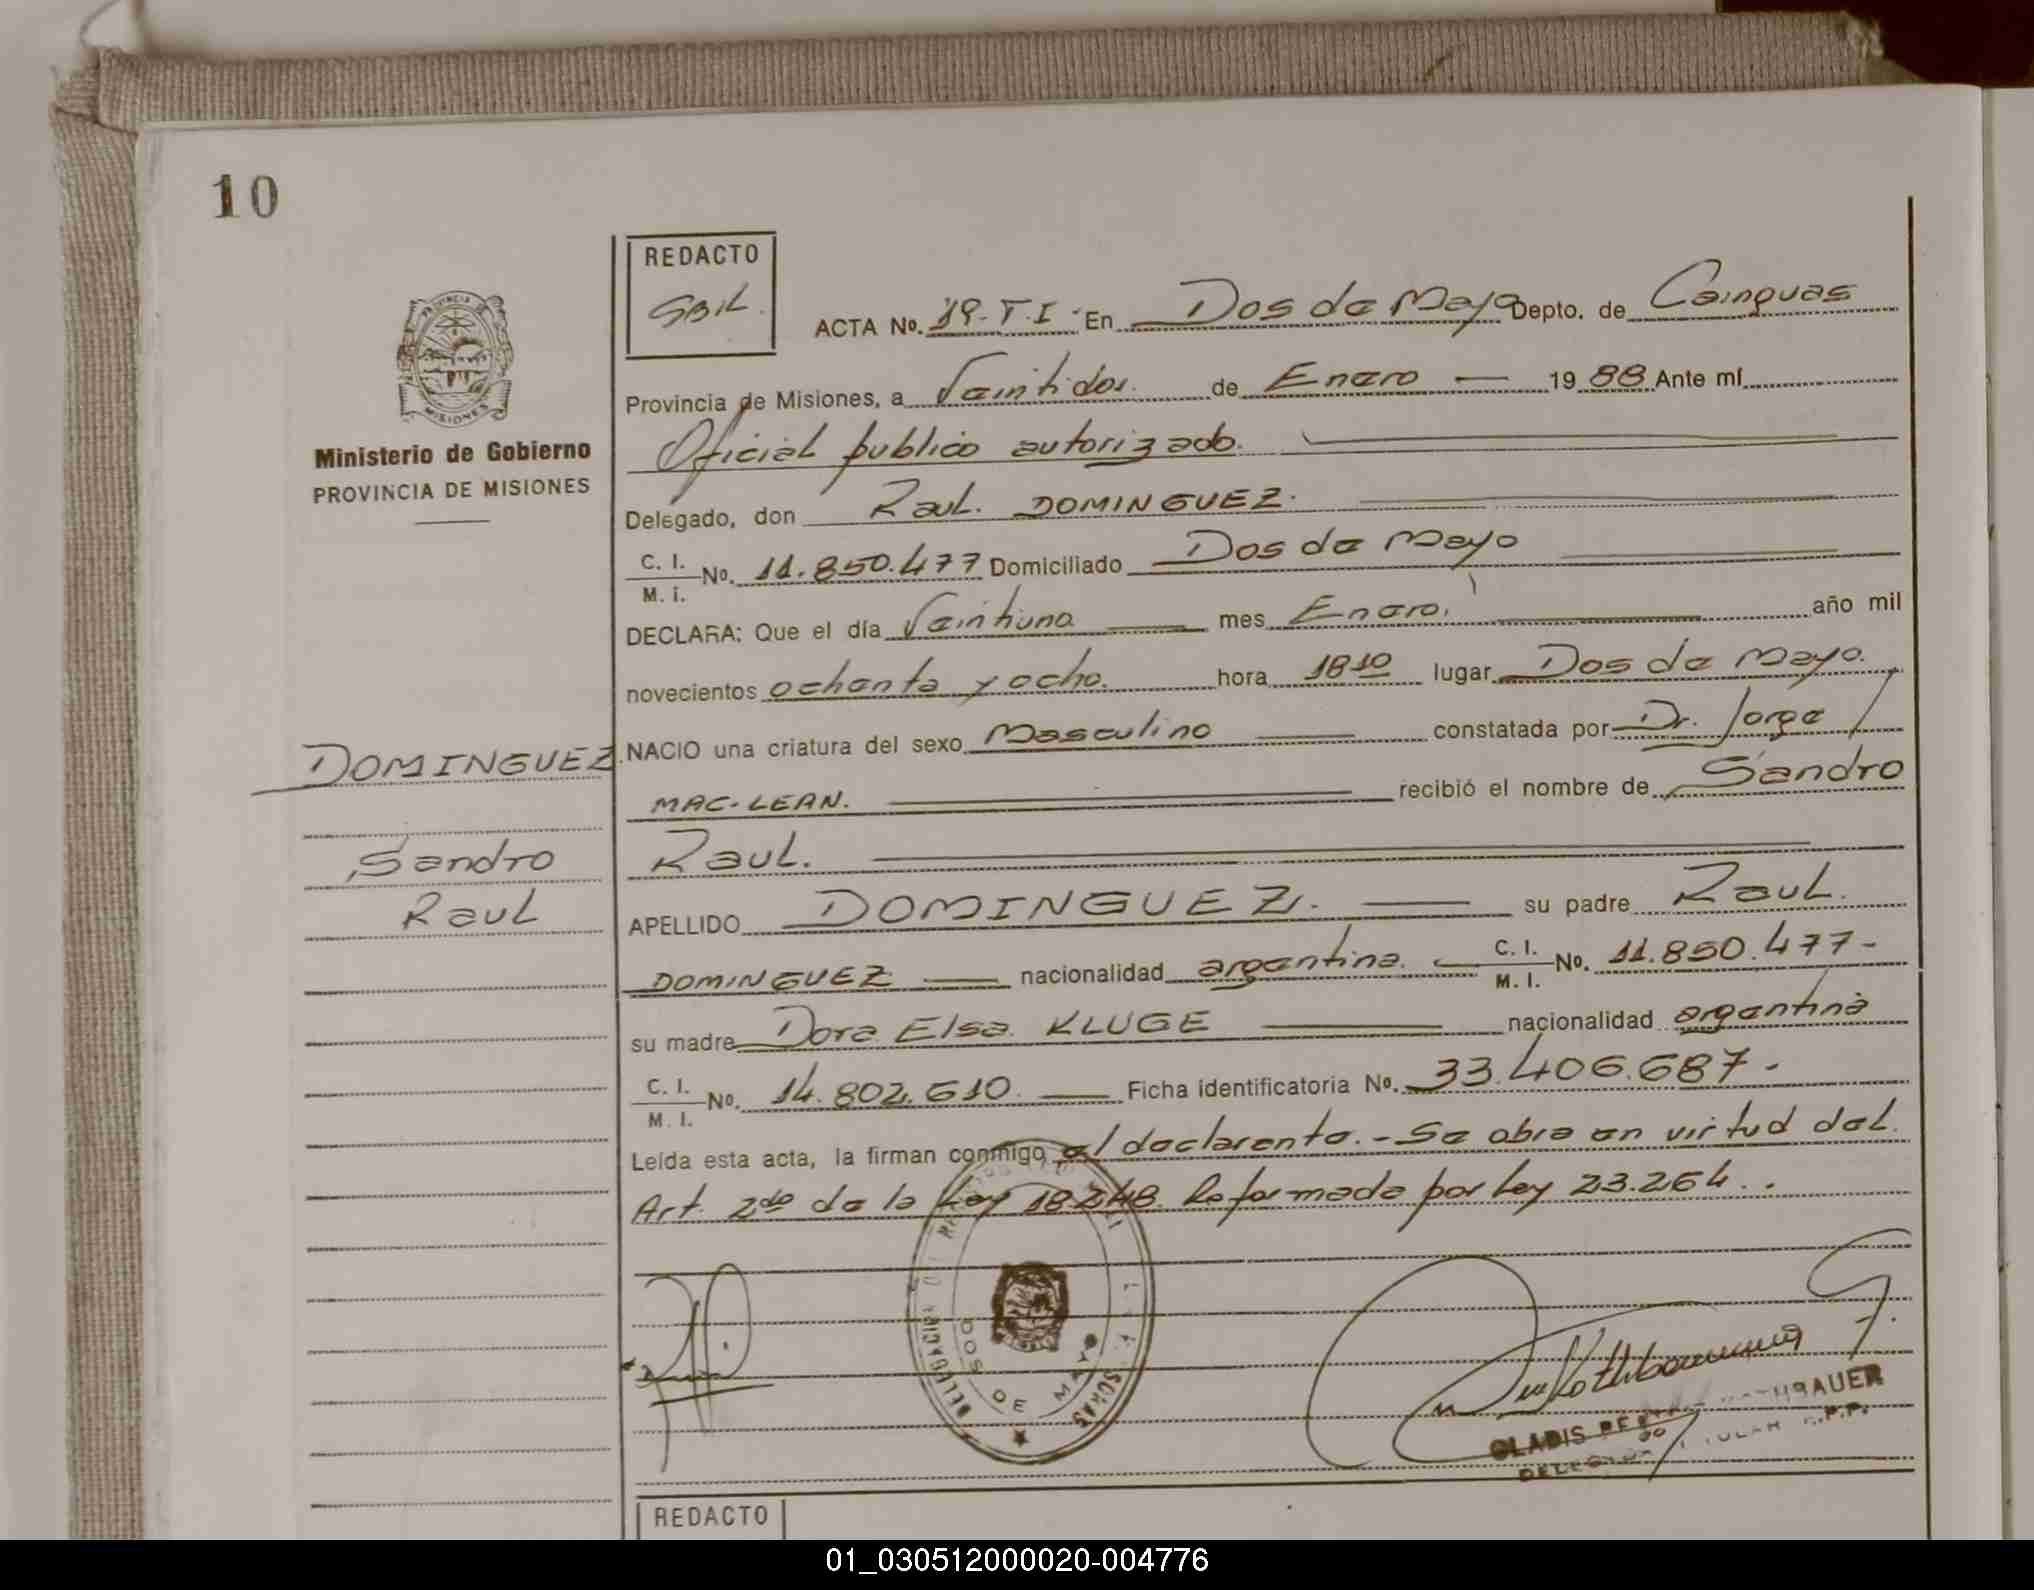 10
REDACTO
SBIL.
ACTA No. 19-T.I. En Dos de Mayo Depto. de Cainguas
Provincia de Misiones, a Veintidos. de Enero — 1988 Ante mí
Oficial publico autorizado.
Delegado, don Raul. DOMINGUEZ.
C. I.
M. I. No. 11.850.477 Domiciliado Dos de Mayo
DECLARA: Que el día Veintiuno mes Enero. año mil
novecientos ochenta y ocho. hora 18 10 lugar Dos de Mayo.
NACIO una criatura del sexo Masculino constatada por Dr. Jorge
MAC-LEAN. recibió el nombre de Sandro
Raul.
APELLIDO DOMINGUEZ. su padre Raul.
DOMINGUEZ nacionalidad argentina. C. I.
M. I. No. 11.850.477-
su madre Dora Elsa KLUGE nacionalidad argentina
C. I.
M. I. No. 14.802.610. Ficha identificatoria No. 33.406.687.-
Leída esta acta, la firman conmigo el declarente.- Se obra en virtud del
Art. 2do de la Ley 18.248. Reformada por Ley 23.264..
PROVINCIA DE
MISIONES
Ministerio de Gobierno
PROVINCIA DE MISIONES
DOMINGUEZ
Sandro
Raul
DELEGACION
DOS DE MAYO
GLADIS
REDACTO
01_030512000020-004776